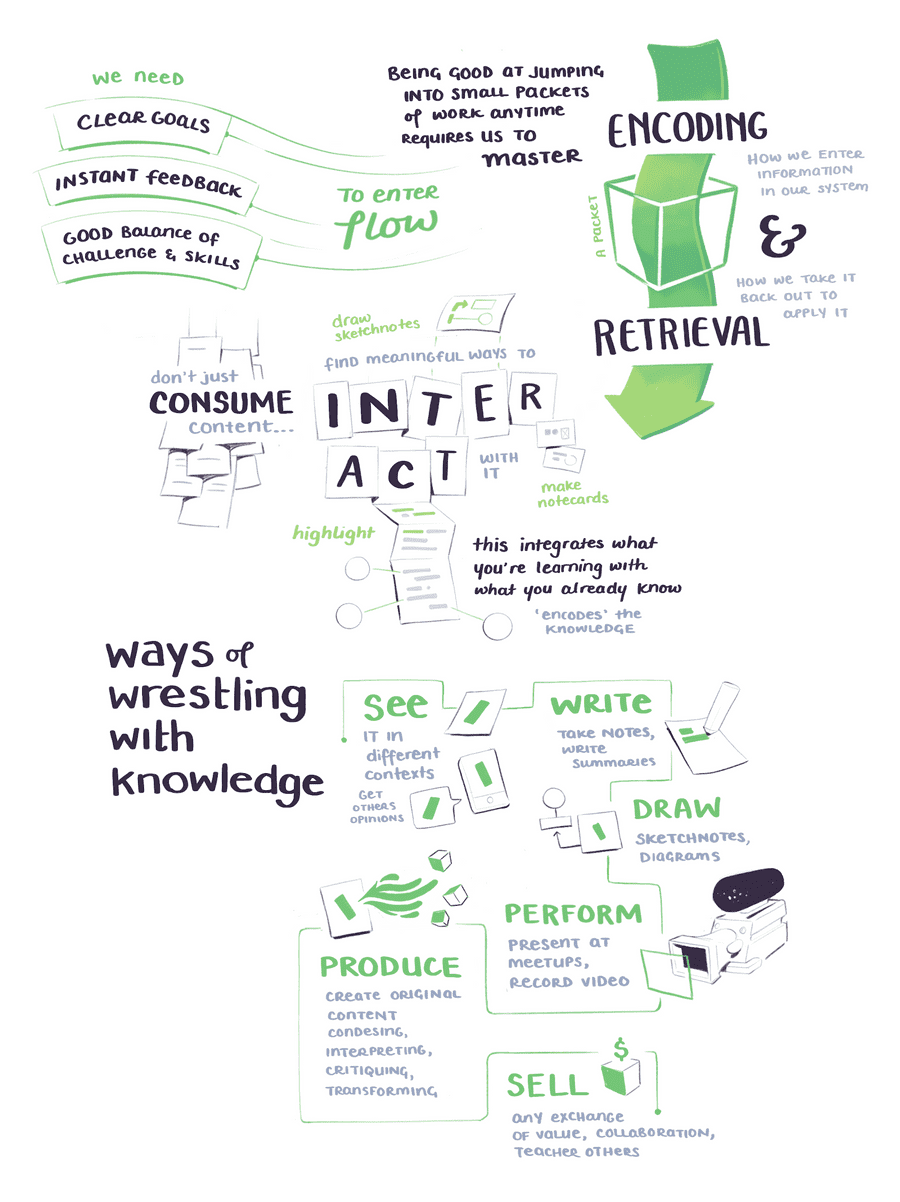 we need
CLEAR GOALS
INSTANT feeDBACK
GOOD Balance of
CHALLENGE & SKILLS
TO ENTER
flow
BEING GOOD AT JUMPING
INTO SMALL PACKETS
of WORK ANYTIME
REQUIRES US TO
master
ENCODING
HOW WE ENTER
INFORMATION
IN OUR SYSTEM
A PACKET
&
HOW WE TAKE IT
BACK OUT TO
APPLY IT
RETRIEVAL
don't just
CONSUME
content...
draw
sketchnotes
FIND MEANINGFUL WAYS TO
INTER
ACT
WITH
IT
make
notecards
highlight
this integrates what
you're learning with
what you already know
'encodes' the
KNOWLEDGE
ways of
wrestling
with
knowledge
See
IT IN
different
contexts
GET
OTHERS
OPINIONS
WRITE
TAKE NOTES,
WRITE
SUMMARIES
DRAW
SKETCHNOTES,
DIAGRAMS
PERFORM
PRESENT AT
MEETUPS,
RECORD VIDEO
PRODUCE
CREATE ORIGINAL
CONTENT
CONDESING,
INTERPRETING,
CRITIQUING,
TRANSFORMING
$
SELL
ANY EXCHANGE
OF VALUE, COLLABORATION,
TEACHER OTHERS